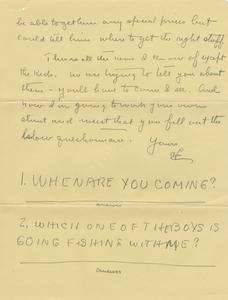 be able to get him any special prices but
could tell him where to get the right stuff.
Thats all the news I know of except
the kids. no use trying to tell you about
them - you'll have to come & see. And
now I'm going to work you over
about and insist that you fill out the
below questionaire.
Yours
1. WHEN ARE YOU COMING?
answers
2. WHICH ONE OF THE BOYS IS
GOING FISHING WITH ME?
answers